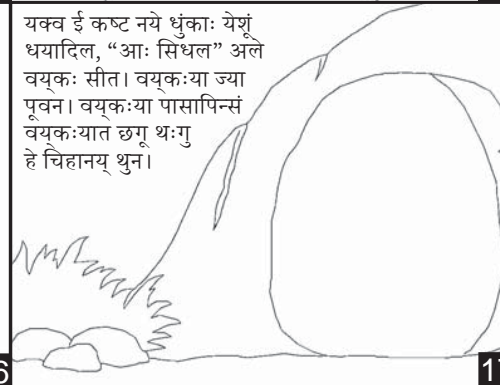 यक्व ई कष्ट नये धुंकाः येशूं
धयादिल, “आः सिधल” अले
वय्‌कः सीत। वय्‌कःया ज्या
पूवन। वय्‌कःया पासापिन्सं
वय्‌कःयात छगू थःगु
हे चिहानय् थुन।
6
17